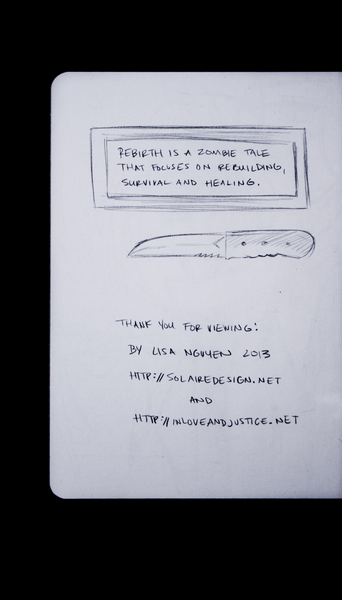 REBIRTH IS A ZOMBIE TALE
THAT FOCUSES ON REBUILDING,
SURVIVAL AND HEALING.
THANK YOU FOR VIEWING:
BY LISA NGUYEN 2013
HTTP://SOLAIREDESIGN.NET
AND
HTTP://INLOVEANDJUSTICE.NET